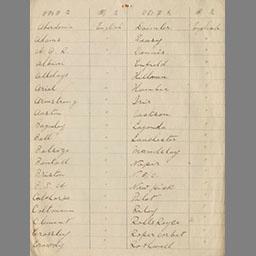 Aberdonia English Daimler English
Adams " Dawry "
A. G. R. " Dennis "
Albion " Enfield "
Alldays " Hillman "
Ariel " Humber "
Armstrong " Iris "
Austin " Jackson "
Baguley " Lagonda "
Bell " Lanchester "
Belsize " Maudslay "
Bentall " Napier "
Briston " N. E. C. "
B. S. A. " New Pick "
Calthorpe " Pilot "
Coltmann " Riley "
Clement " Rolls Royce "
Crossley " Roper Corbet "
Crowdy " Rothwell "